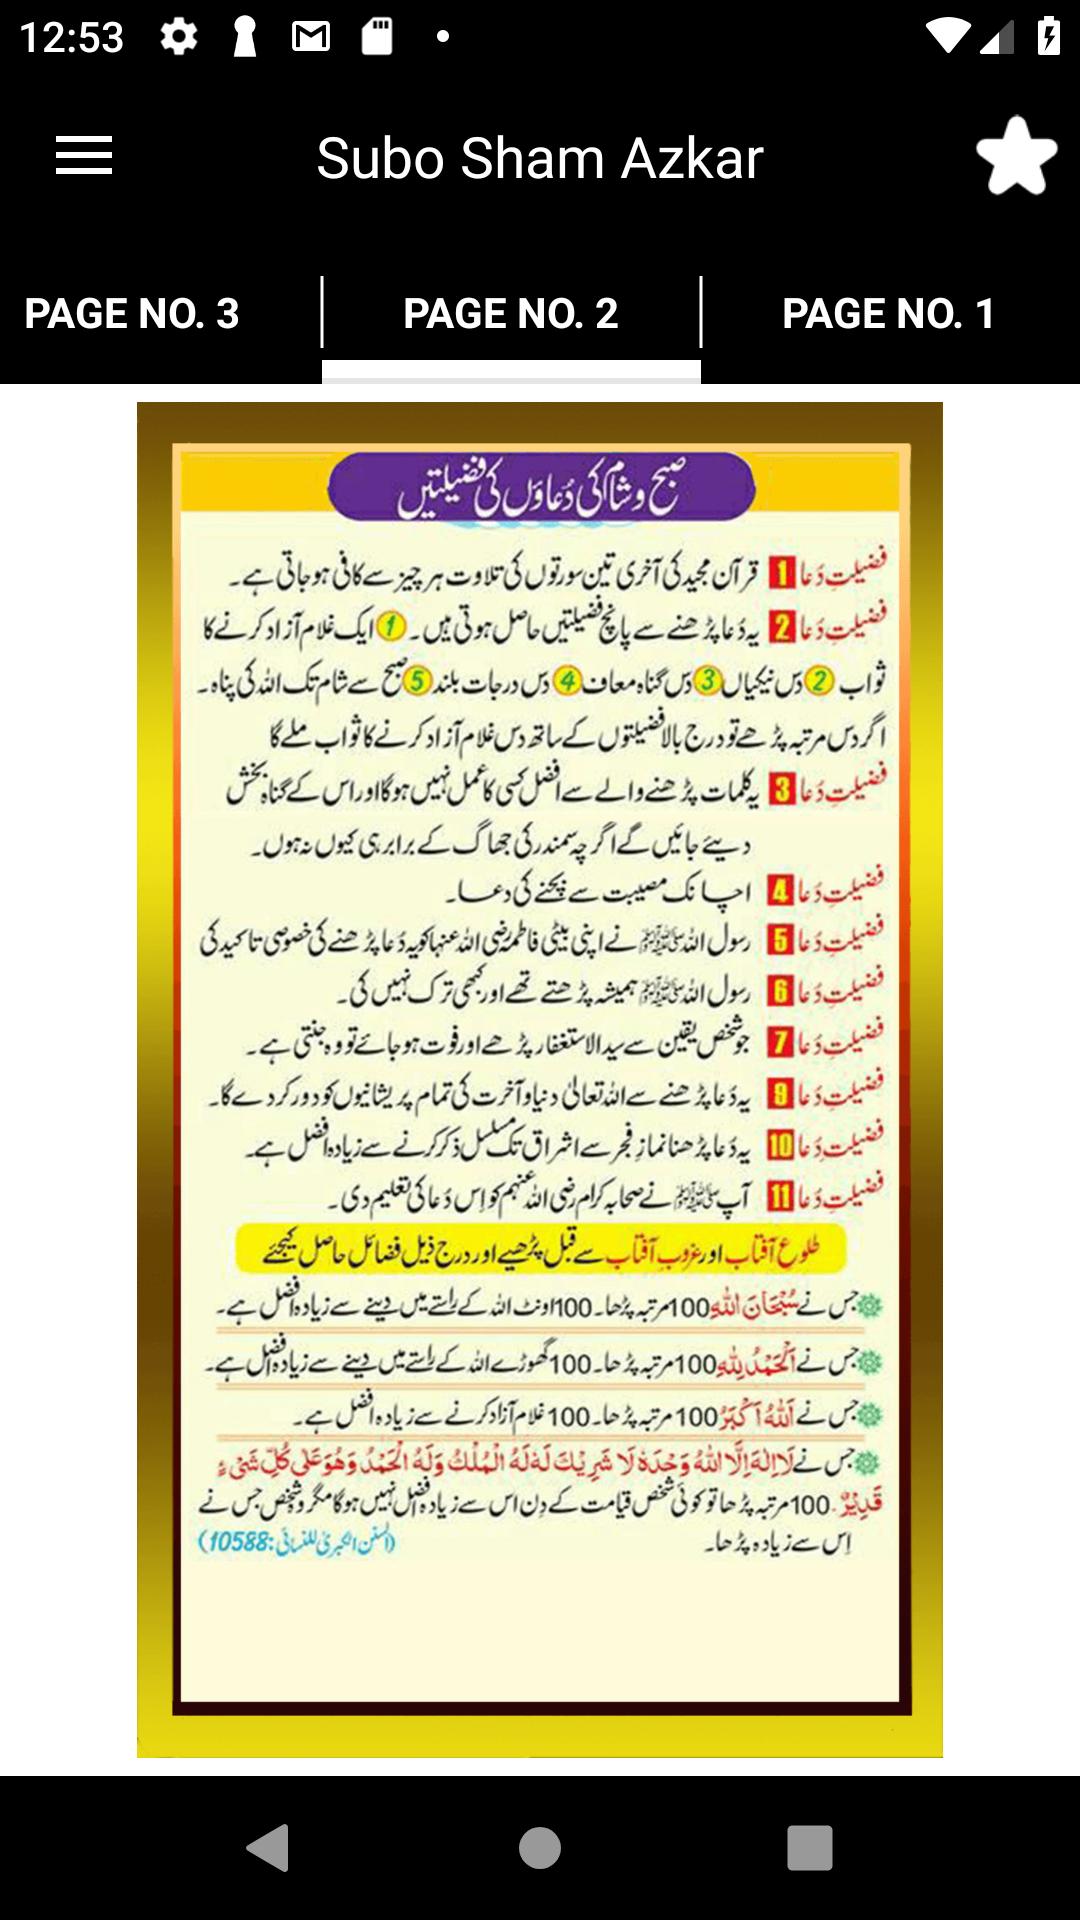 12:53
Subo Sham Azkar
PAGE NO. 3
PAGE NO. 2
PAGE NO. 1
صبح و شام کی دُعاؤں کی فضیلتیں
فضیلتِ دُعا 1 قرآن مجید کی آخری تین سورتوں کی تلاوت ہر چیز سے کافی ہو جاتی ہے۔
فضیلتِ دُعا 2 یہ دُعا پڑھنے سے پانچ فضیلتیں حاصل ہوتی ہیں۔ 1 ایک غلام آزاد کرنے کا
ثواب 2 دس نیکیاں 3 دس گناہ معاف 4 دس درجات بلند 5 صبح سے شام تک اللہ کی پناہ۔
اگر دس مرتبہ پڑھے تو درج بالا فضیلتوں کے ساتھ دس غلام آزاد کرنے کا ثواب ملے گا
فضیلتِ دُعا 3 یہ کلمات پڑھنے والے سے افضل کسی کا عمل نہیں ہوگا اور اس کے گناہ بخش
دیئے جائیں گے اگرچہ سمندر کی جھاگ کے برابر ہی کیوں نہ ہوں۔
فضیلتِ دُعا 4 اچانک مصیبت سے بچنے کی دعا۔
فضیلتِ دُعا 5 رسول اللہ ﷺ نے اپنی بیٹی فاطمہ رضی اللہ عنہا کو یہ دُعا پڑھنے کی خصوصی تاکید کی
فضیلتِ دُعا 6 رسول اللہ ﷺ ہمیشہ پڑھتے تھے اور کبھی ترک نہیں کی۔
فضیلتِ دُعا 7 جو شخص یقین سے سید الاستغفار پڑھے اور فوت ہو جائے تو وہ جنتی ہے۔
فضیلتِ دُعا 9 یہ دُعا پڑھنے سے اللہ تعالیٰ دنیا و آخرت کی تمام پریشانیوں کو دور کر دے گا۔
فضیلتِ دُعا 10 یہ دُعا پڑھنا نمازِ فجر سے اشراق تک مسلسل ذکر کرنے سے زیادہ افضل ہے۔
فضیلتِ دُعا 11 آپ ﷺ نے صحابہ کرام رضی اللہ عنہم کو اِس دُعا کی تعلیم دی۔
طلوع آفتاب اور غروبِ آفتاب سے قبل پڑھیے اور درج ذیل فضائل حاصل کیجئے
جس نے سُبْحَانَ اللهِ 100 مرتبہ پڑھا۔ 100 اونٹ اللہ کے راستے میں دینے سے زیادہ افضل ہے۔
جس نے اَلْحَمْدُ لِلّٰهِ 100 مرتبہ پڑھا۔ 100 گھوڑے اللہ کے راستے میں دینے سے زیادہ افضل ہے۔
جس نے اَللّٰهُ اَكْبَرُ 100 مرتبہ پڑھا۔ 100 غلام آزاد کرنے سے زیادہ افضل ہے۔
جس نے لَا اِلٰهَ اِلَّا اللّٰهُ وَحْدَهٗ لَا شَرِيْكَ لَهٗ لَهُ الْمُلْكُ وَلَهُ الْحَمْدُ وَهُوَ عَلٰى كُلِّ شَیْءٍ
قَدِيْرٌ۔ 100 مرتبہ پڑھا تو کوئی شخص قیامت کے دِن اس سے زیادہ افضل نہیں ہوگا مگر وہ شخص جس نے
اِس سے زیادہ پڑھا۔ (السنن الکبریٰ للنسائی: 10588)